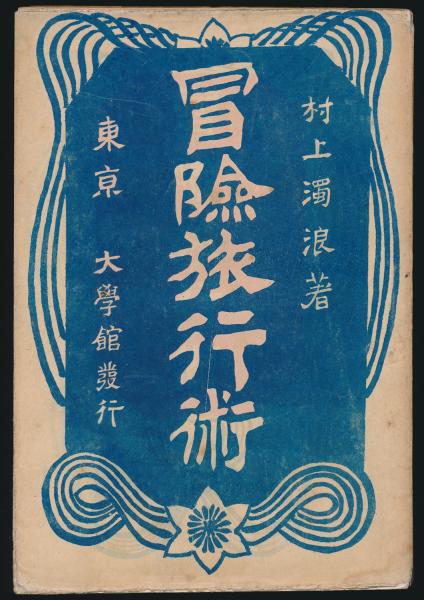 村上濁浪著
冒險旅行術
東京 大學館發行